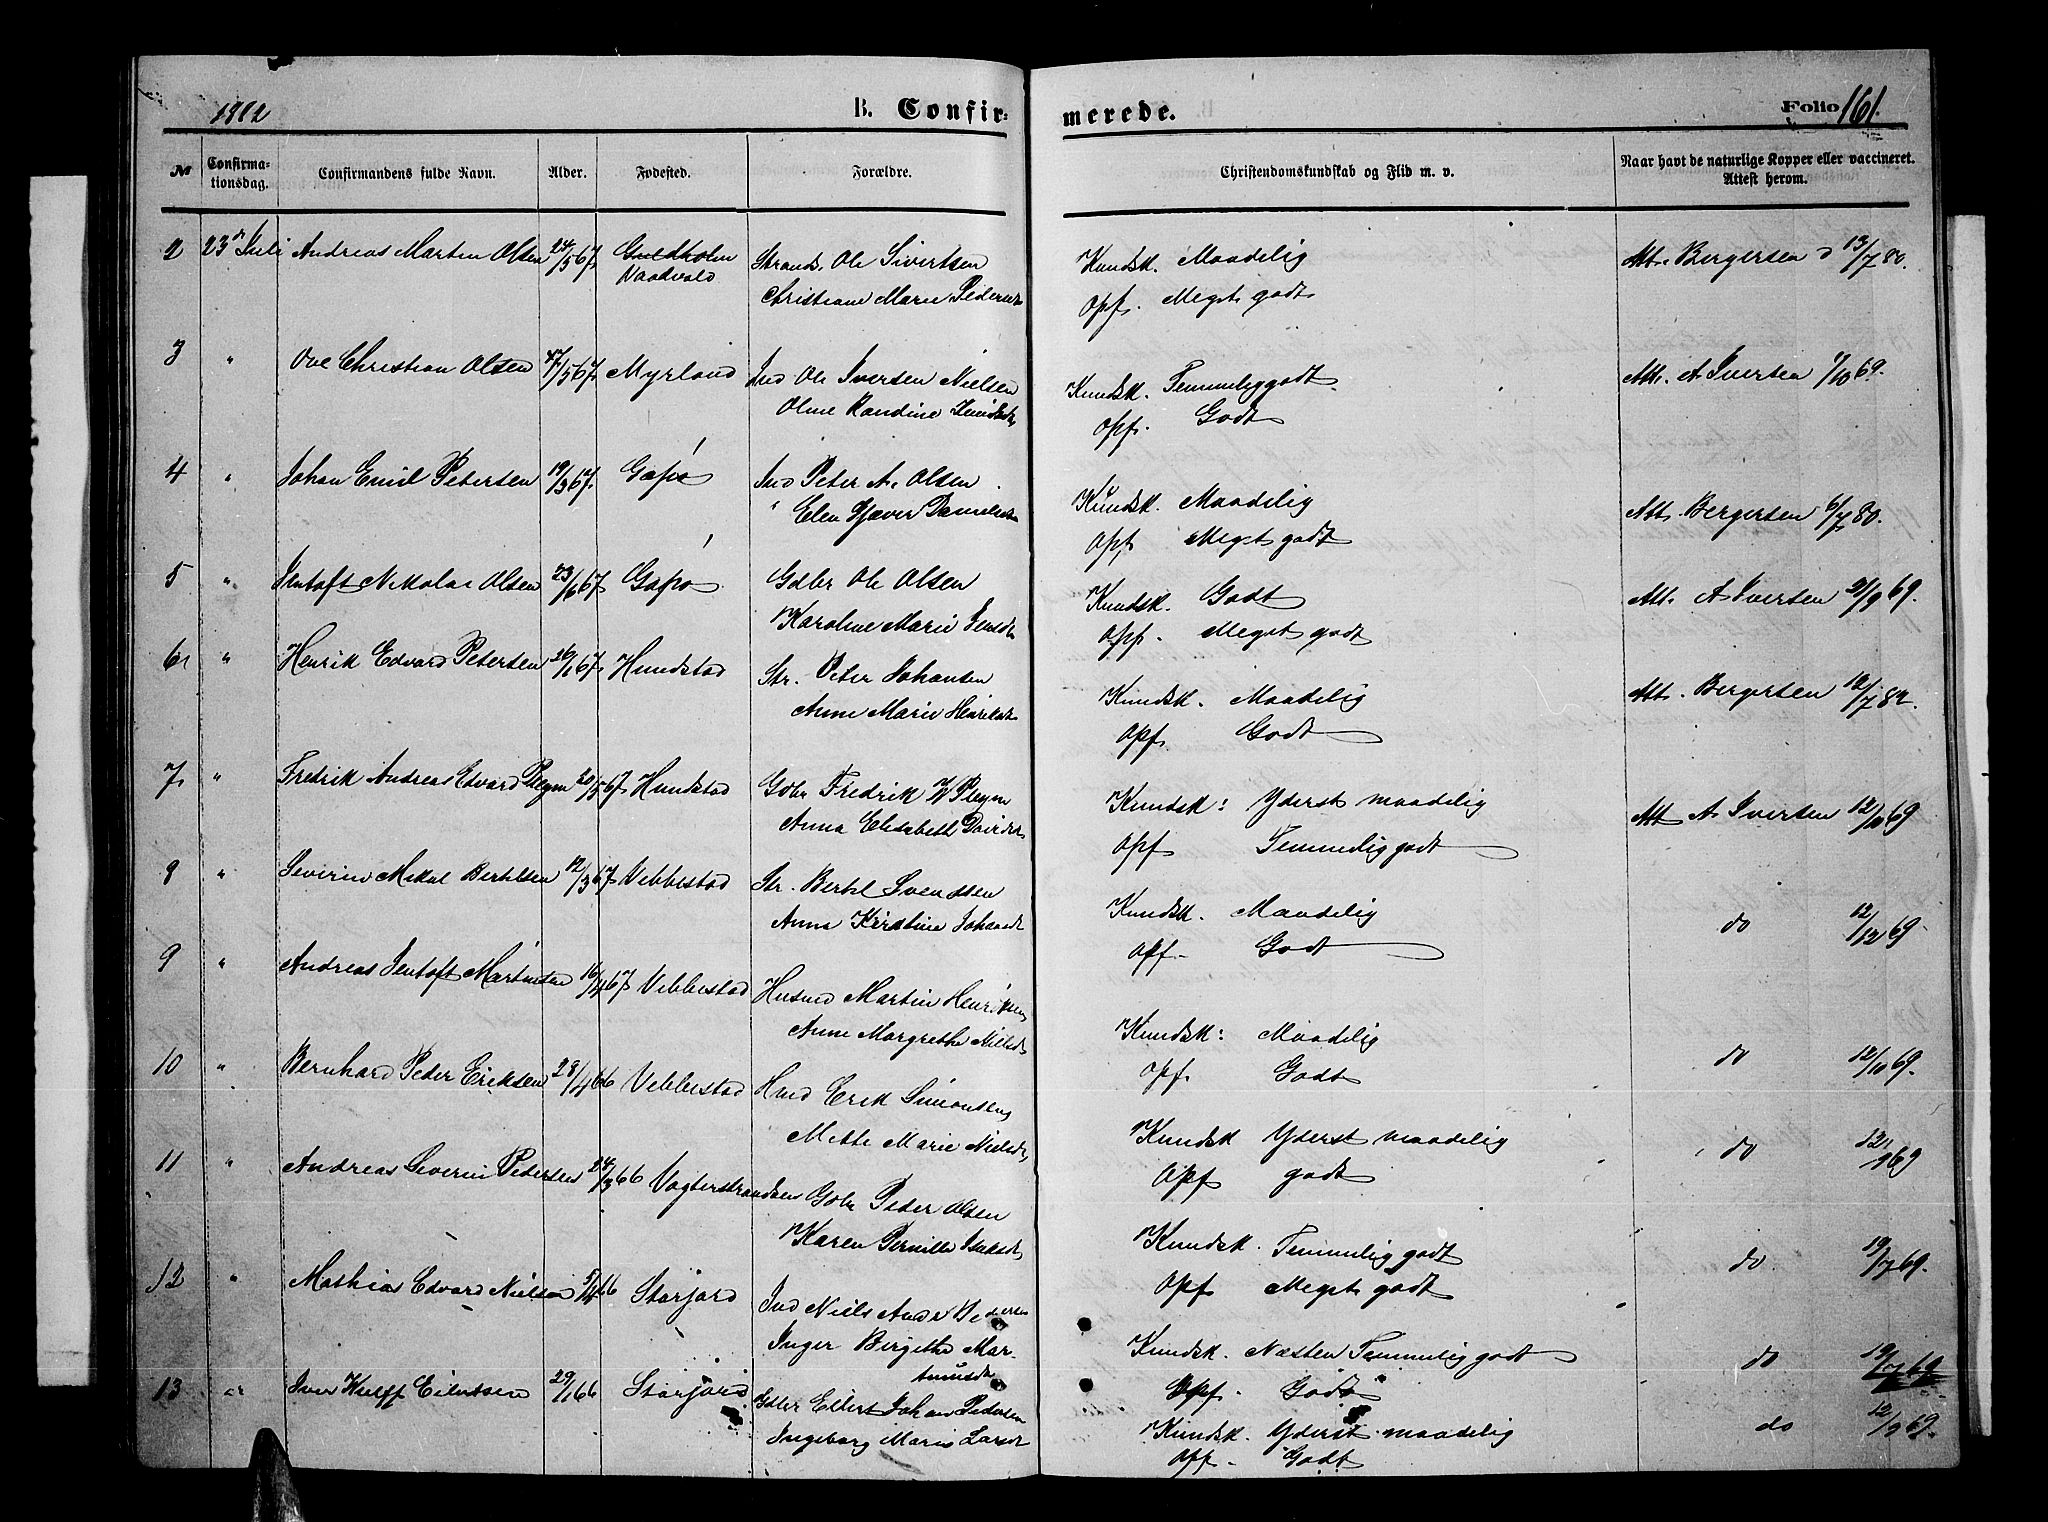 1882
B. Confir=
merede.
Folio 161.
№
Confirma-
tionsdag.
Confirmandens fulde Navn.
Alder.
Fødested.
Forældre.
Christendomskundskab og Flid m. v.
Naar havt de naturlige Kopper eller vaccineret.
Attest herom.
2 23 Juli Andreas Martin Olsen 24/5 67 Guldholm
Vaadvold
Strands. Ole Sivertsen
Christiane Marie Pedersd
Kundsk. Maadelig
Opf. Meget godt
Att. Bergersen d 13/7 80.
3 " Ove Christian Olsen 17/5 67 Myrland
Ind Ole Iversen Nielsen
Oline Randine
Kundsk. Temmelig godt
Opf. Godt
Att. A Iversen 1/10 69.
4 " Johan Emil Petersen 19/3 67. Gapø
Ind Peter A. Olsen
" Elen Hjæver Danielsd
Kundsk. Maadelig
Opf Meget godt
Att. Bergersen 6/7 80.
5 " Jentoft Nikolai Olsen 23/6 67 Gapø
Gdbr Ole Olsen
Karoline Marie Jensd
Kundsk. Godt
Opf. Meget godt
Att. A Iversen 21/9 69.
6 " Henrik Edvard Petersen 26/1 67 Hundstad
Str. Peter Johansen
Anne Marie Henriksd
Kundsk. Maadelig
Opf. Godt
Att. Bergersen 12/7 82.
7 " Fredrik Andreas Edvard Pleym 20/5 67 Hundstad
Gdbr Fredrik W Pleym
Anna Elisabeth
Kundsk: Yderst maadelig
Opf Temmelig godt
Att A. Iversen 12/10 69
8 " Severin Mikal Bertelsen 12/3 67 Vebbestad
Str. Bertel Svendsen
Anna Kirstine Johansd
Kundsk. Maadelig
Opf. Godt
do 12/12 69
9 " Andreas Jentoft Martinsen 16/4 67 Vebbestad
Husmd Martin Henriksen
Anne Margrethe Nielsd
Kundsk: Maadelig
Opf. Godt
do 12/10 69.
10 " Bernhard Peder Eriksen 28/4 66 Vebbestad
Hmd Erik Simonsen
Mette Marie Nielsd
Kundsk Yderst maadelig
Opf godt
do 12/ 69
11 " Andreas Severin Pedersen 24/3 66 Vogterstranden
Gdbr Peder Olsen
Karen Pernille Isaksd
Kundsk. Temmelig godt
Opf Meget godt
do 19/7 69.
12 " Mathias Edvard Nielsen 5/4 66 Storjord
Ind Niels Andr Pedersen
Inger Birgithe Mar-
tinusd
Kundsk. Næsten Temmelig godt
Opf. Godt
do 19/7 69
13 " Iver Kulff Eilertsen 29/1 66 Storjord
Gdbr Eilert Johan Pedersen
Ingeborg Marie Larsd
Kundsk. Yderst maadelig
Opf - Godt
do 12/9 69.